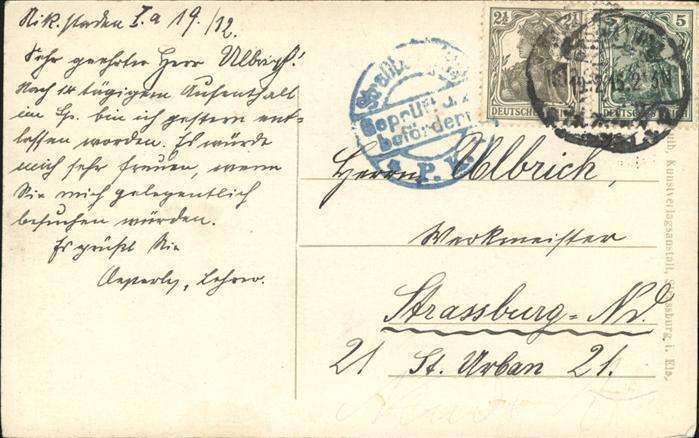 Nik.staden I.a 19./12.
Sehr geehrter Herr Ulbrich!
Nach 14 tägigem Aufenthalt
im Sp. bin ich gestern ent-
lassen worden. Es würde
mich sehr freuen, wenn
Sie mich gelegentlich
besuchen würden.
Es grüßt Sie
Lehrer.
2½ 2½
DEUTSCHES
5 5
DEUTSCHES REICH
Geprüft u. z.
befördern
P. K.
Herrn Ulbrich
Werkmeister
Strassburg-Nd.
21 St. Urban 21.
Kunstverlagsanstalt, Strassburg i. Els.